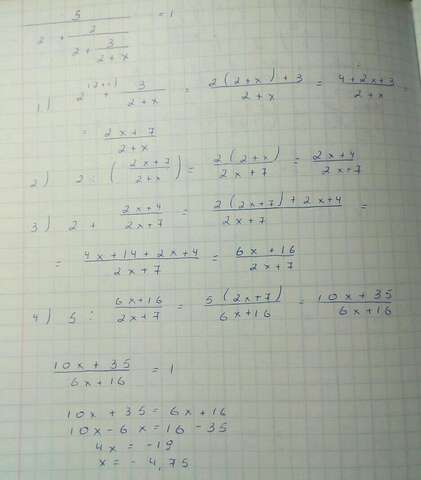 5 / (2 + 2 / (2 + 3 / (2 + x))) = 1
1) 2^(2+x) + 3/(2+x) = (2(2+x)+3)/(2+x) = (4+2x+3)/(2+x) =
= (2x+7)/(2+x)
2) 2 : ((2x+7)/(2+x)) = (2(2+x))/(2x+7) = (2x+4)/(2x+7)
3) 2 + (2x+4)/(2x+7) = (2(2x+7)+2x+4)/(2x+7) =
= (4x+14+2x+4)/(2x+7) = (6x+16)/(2x+7)
4) 5 : (6x+16)/(2x+7) = (5(2x+7))/(6x+16) = (10x+35)/(6x+16)
(10x+35)/(6x+16) = 1
10x + 35 = 6x + 16
10x - 6x = 16 - 35
4x = -19
x = - 4,75